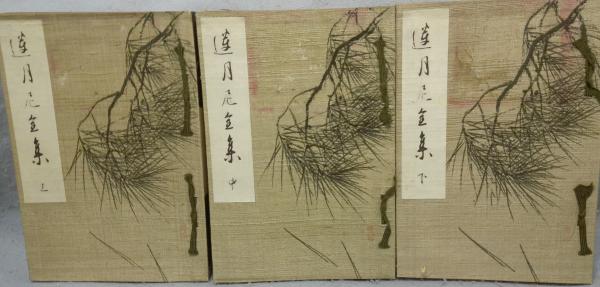 蓮月尼全集 上
蓮月尼全集 中
蓮月尼全集 下